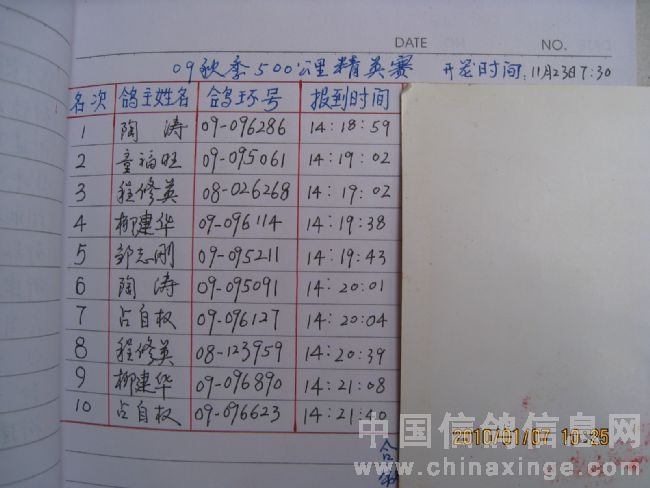 DATE NO.
09秋季500公里精英赛 开笼时间:11月23日7:30
名次 鸽主姓名 鸽环号 报到时间
1 陶涛 09-096286 14:18:59
2 童福旺 09-095061 14:19:02
3 程修英 08-026268 14:19:02
4 柳建华 09-096114 14:19:38
5 邹志刚 09-095211 14:19:43
6 陶涛 09-095091 14:20:01
7 占自权 09-096127 14:20:04
8 程修英 08-123959 14:20:39
9 柳建华 09-096890 14:21:08
10 占自权 09-096623 14:21:40
中国信鸽信息网
2010/01/07 10:25
www.chinaxinge.com